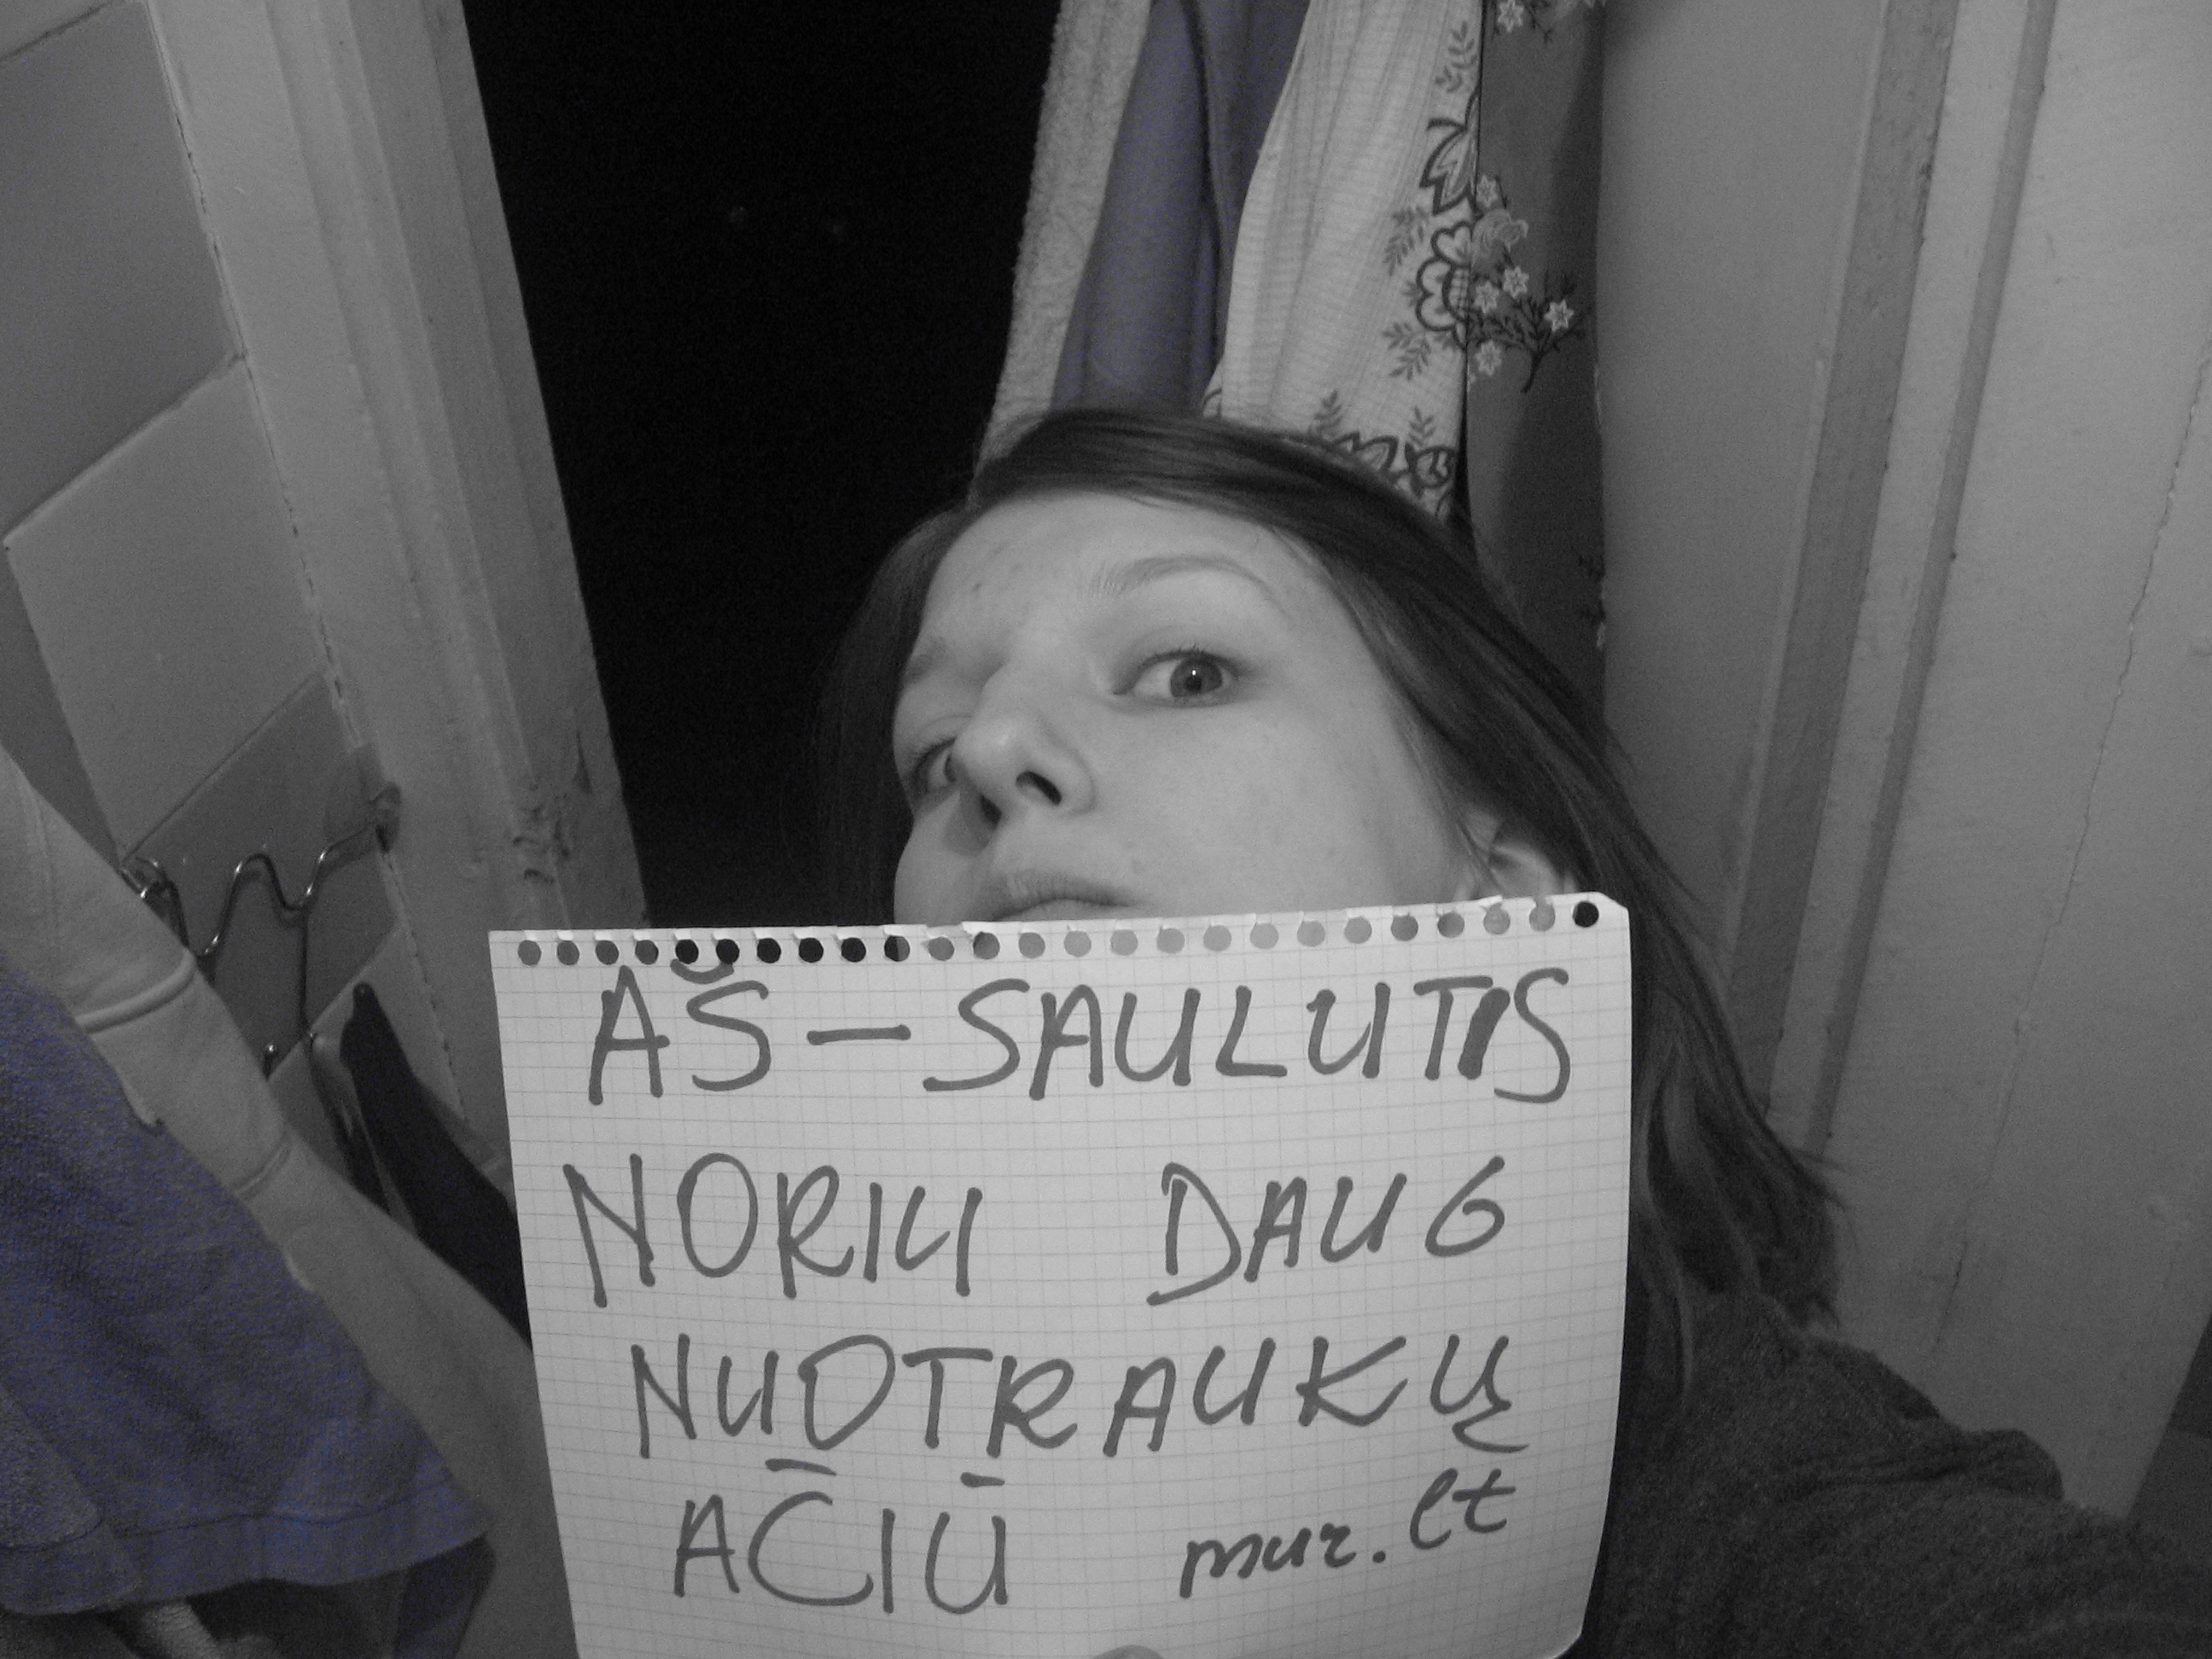 AŠ – SAULUTIS
NORIU DAUG
NUOTRAUKŲ
AČIŪ mur.lt